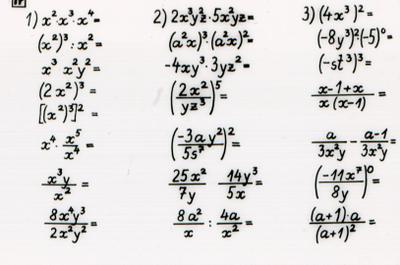 1) x²·x³·x⁴=
(x²)³·x²=
x³ x²y²=
(2x²)³=
[(x²)³]²=
x⁴· x⁵/x⁴ =
x³y/x² =
8x⁴y³/2x²y² =
2) 2x³y²z·5x²yz=
(a²x)³·(a²x)²=
-4xy³·3yz²=
(2x²/yz³)⁵=
(-3ay²/5s⁷)²=
25x²/7y 14y³/5x =
8a²/x : 4a/x² =
3) (4x³)²=
(-8y³)²(-5)⁰=
(-st³)³=
x-1+x/x(x-1) =
a/3x²y - a-1/3x²y =
(-11x⁷/8y)⁰=
(a+1)·a/(a+1)² =